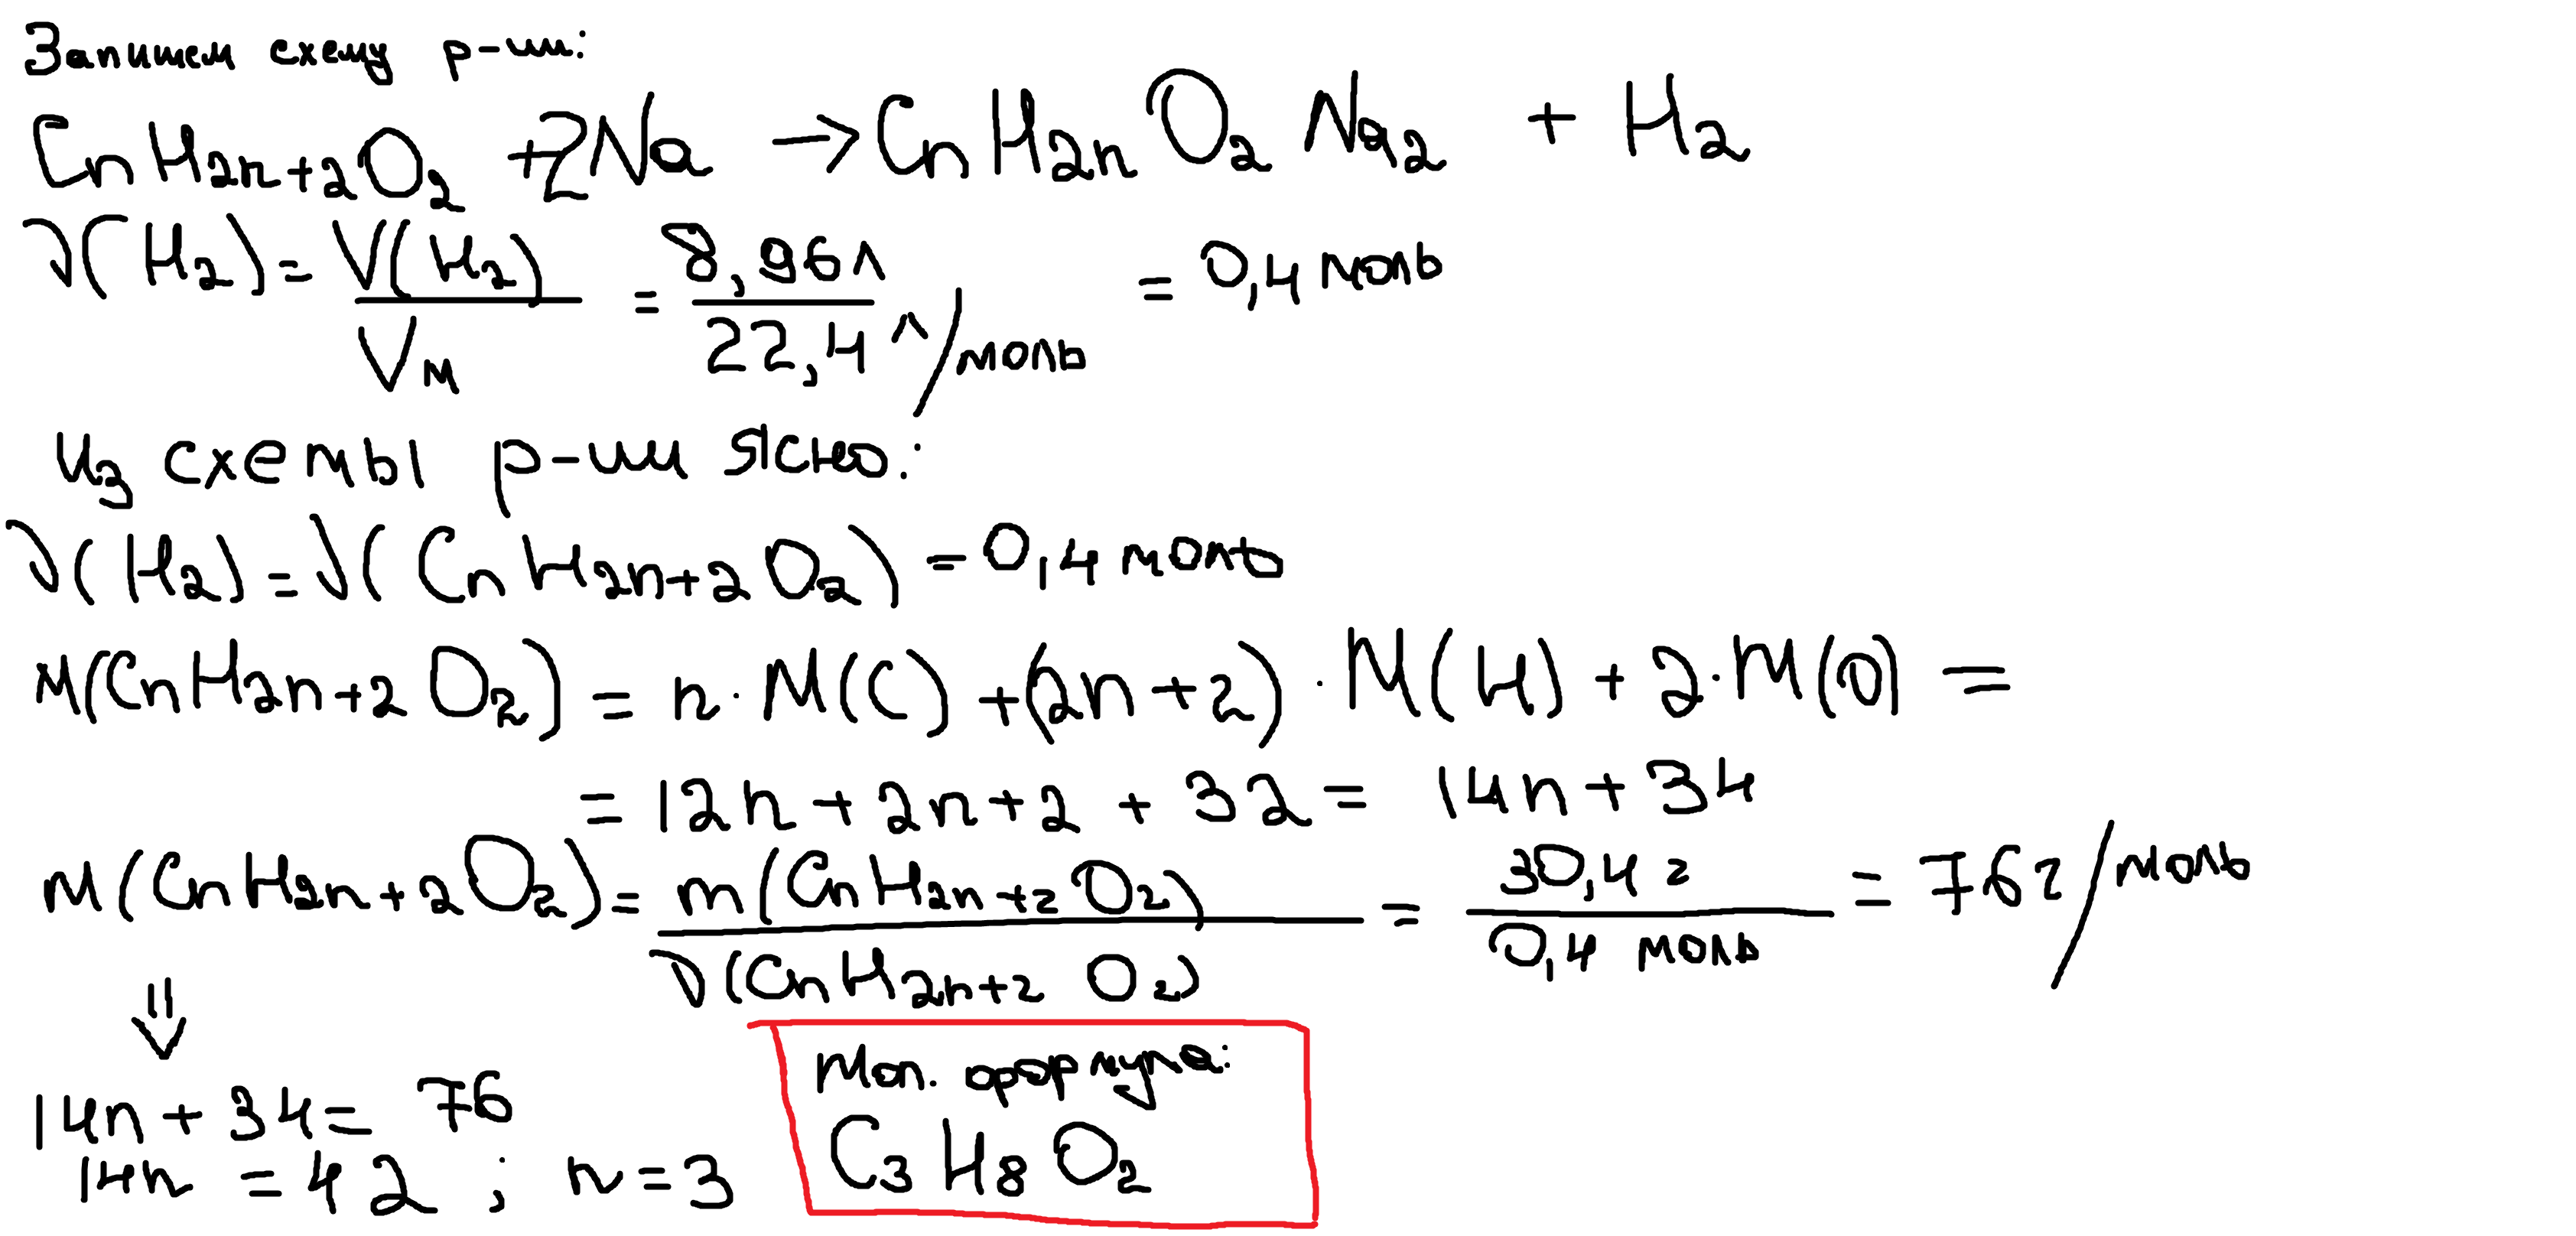 Запишем схему р-ии:
CnH2n+2O2 + 2Na → CnH2nO2Na2 + H2
ν(H2) = V(H2)/Vм = 8,96л/22,4 л/моль = 0,4 моль
Из схемы р-ии ясно:
ν(H2) = ν(CnH2n+2O2) = 0,4 моль
M(CnH2n+2O2) = n·M(C) + (2n+2)·M(H) + 2·M(O) =
= 12n + 2n + 2 + 32 = 14n + 34
M(CnH2n+2O2) = m(CnH2n+2O2)/ν(CnH2n+2O2) = 30,4 г/0,4 моль = 76г/моль
⇓
14n + 34 = 76
14n = 42 ; n = 3
Мол. формула:
C3H8O2